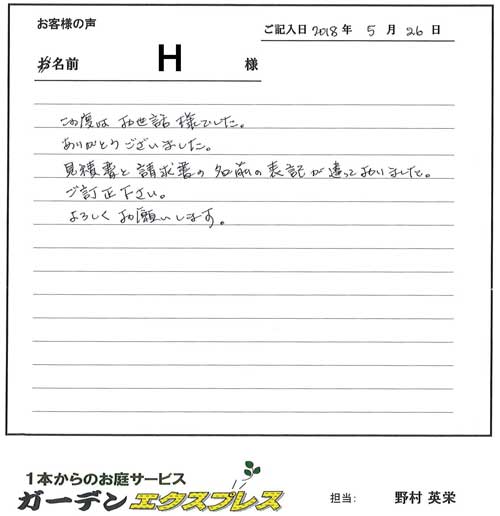 お客様の声
ご記入日 2018 年 5 月 26 日
お名前 H 様
この度は お世話様でした。
ありがとうございました。
見積書と請求書の名前の表記が違っておりました。
ご訂正下さい。
よろしくお願いします。
1本からのお庭サービス
ガーデンエクスプレス
担当: 野村 英栄